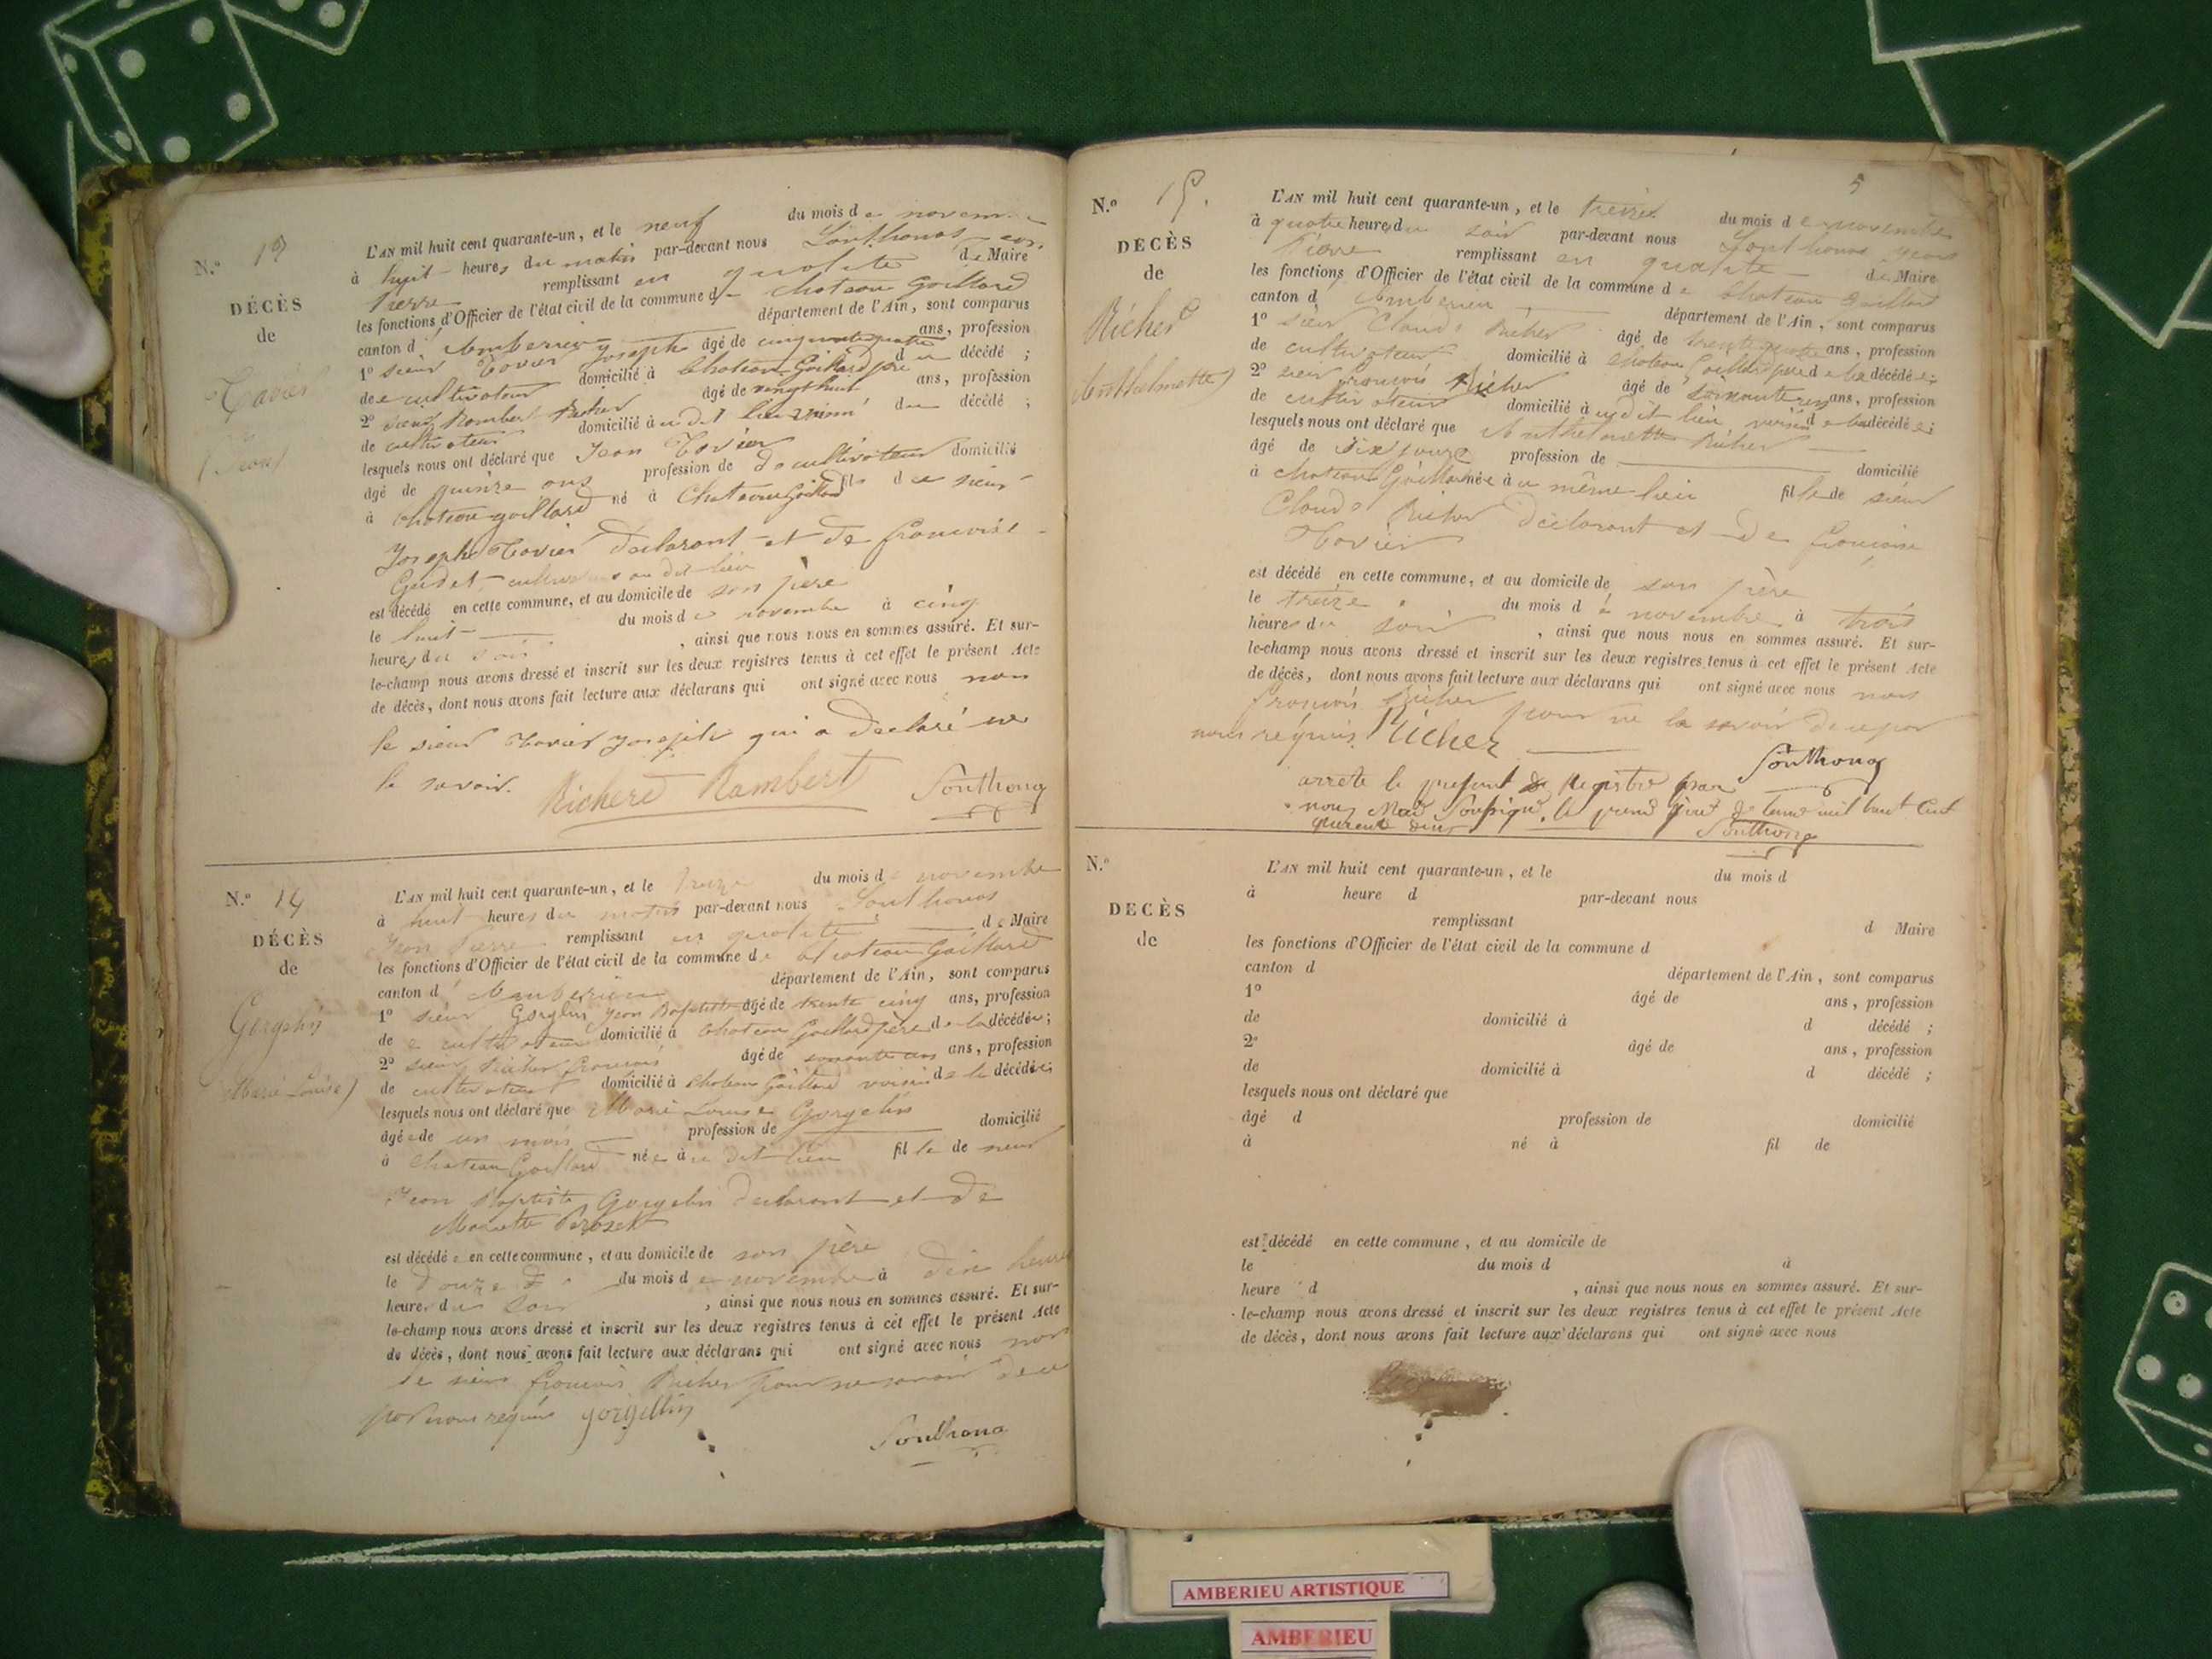 N.o 13
DÉCÈS
de
Tavier
Jean
L'AN mil huit cent quarante-un, et le neuf du mois de novem
à huit heures du matin par-devant nous Southonas
Pierre remplissant en qualité de Maire
les fonctions d'Officier de l'état civil de la commune de Chateau Gaillard
canton d'Amberieu département de l'Ain, sont comparus
1o sieur Tavier Joseph âgé de cinquante quatre ans, profession
de cultivateur domicilié à Chateau Gaillard père du décédé ;
2o sieur Rambert Richer âgé de vingt huit ans, profession
de cultivateur domicilié au dit lieu du décédé ;
lesquels nous ont déclaré que Jean Tavier
âgé de quinze ans profession de cultivateur domicilié
à Chateau gaillard né à Chateau Gaillard fils de sieur
Joseph Tavier declarant et de francoise
Gudet au dit lieu
est décédé en cette commune, et au domicile de son père
le huit du mois de novembre à cinq
heures du soir , ainsi que nous nous en sommes assuré. Et sur-
le-champ nous avons dressé et inscrit sur les deux registres tenus à cet effet le présent Acte
de décès, dont nous avons fait lecture aux déclarans qui ont signé avec nous non
le sieur Tavier joseph qui a declaré ne
le savoir. Richerd Rambert Southona
N.o 14
DÉCÈS
de
Gorgelin
Marie Louise)
L'AN mil huit cent quarante-un, et le treize du mois de novembre
à huit heures du matin par-devant nous Southonas
Jean Pierre remplissant en qualité de Maire
les fonctions d'Officier de l'état civil de la commune de Chateau Gaillard
canton d'Amberieu département de l'Ain, sont comparus
1o sieur Gorgelin Jean Baptiste âgé de trente cinq ans, profession
de cultivateur domicilié à Chateau Gaillard père de la décédée ;
2o sieur Richer francois âgé de soixante ans, profession
de cultivateur domicilié à Chateau Gaillard voisin de la décédée ;
lesquels nous ont déclaré que Marie Louise Gorgelin
âgée de un mois profession de domicilié
à Chateau Gaillard née au dit lieu fille de sieur
Jean Baptiste Gorgelin declarant et de
Mariette Perozet
est décédée en cette commune, et au domicile de son père
le douze du mois de novembre à dix heures
heures du soir , ainsi que nous nous en sommes assuré. Et sur-
le-champ nous avons dressé et inscrit sur les deux registres tenus à cet effet le présent Acte
de décès, dont nous avons fait lecture aux déclarans qui ont signé avec nous non
le sieur francois Richer pour ne savoir de ce
par nous requis gorgellin
Southona
5
N.o 15.
DÉCÈS
de
Richerd
Anthelmette)
L'AN mil huit cent quarante-un, et le treize du mois de novembre
à quatre heures du soir par-devant nous Southonas jean
Pierre remplissant en qualité de Maire
les fonctions d'Officier de l'état civil de la commune de Chateau Gaillard
canton d'Amberieu département de l'Ain, sont comparus
1o sieur Claude Richer âgé de trente quatre ans, profession
de cultivateur domicilié à Chateau Gaillard père de la décédée ;
2o sieur francois Richer âgé de soixante ans, profession
de cultivateur domicilié à u dit lieu voisin de la décédée ;
lesquels nous ont déclaré que Anthelmette Richer
âgé de six jours profession de domicilié
à Chateau Gaillard née à u même lieu fille de sieur
Claude Richer declarant et de francoise
Tavier
est décédé en cette commune, et au domicile de son père
le treize du mois de novembre à trois
heures du soir , ainsi que nous nous en sommes assuré. Et sur-
le-champ nous avons dressé et inscrit sur les deux registres tenus à cet effet le présent Acte
de décès, dont nous avons fait lecture aux déclarans qui ont signé avec nous non
francois Richer pour ne la savoir de ce par
nous requis Richer
Southona
arreté le present Registre par
nous Maire Soussigné, le mil huit Cent
quarente deux Southona
N.o
DECÈS
de
L'AN mil huit cent quarante-un, et le du mois d
à heure d par-devant nous
remplissant d Maire
les fonctions d'Officier de l'état civil de la commune d
canton d département de l'Ain, sont comparus
1o âgé de ans, profession
de domicilié à d décédé ;
2o âgé de ans, profession
de domicilié à d décédé ;
lesquels nous ont déclaré que
âgé d profession de domicilié
à né à fil de
est décédé en cette commune, et au domicile de
le du mois d à
heure d , ainsi que nous nous en sommes assuré. Et sur-
le-champ nous avons dressé et inscrit sur les deux registres tenus à cet effet le présent Acte
de décès, dont nous avons fait lecture aux déclarans qui ont signé avec nous
AMBERIEU ARTISTIQUE
AMBERIEU